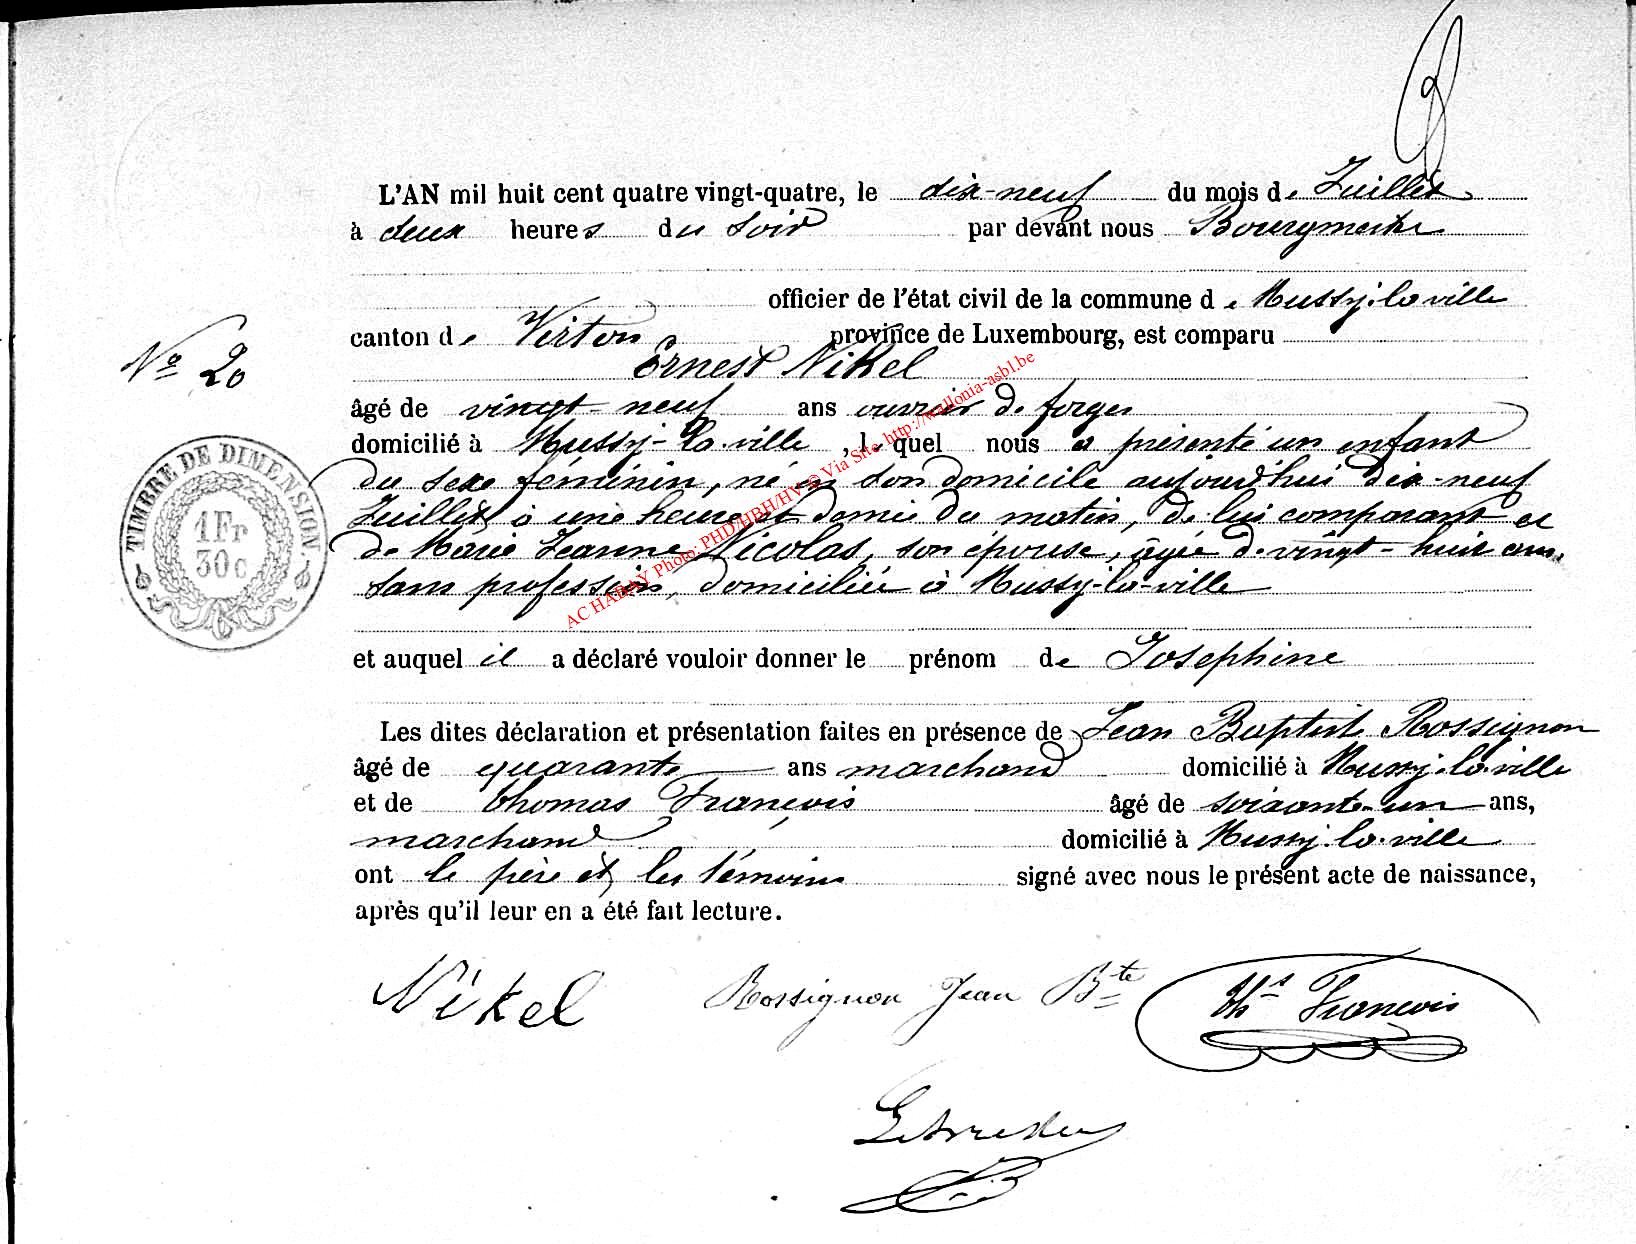 L'AN mil huit cent quatre vingt-quatre, le dix-neuf du mois de Juillet
à deux heures du soir par devant nous Bourgmestre
officier de l'état civil de la commune de Mussy-la-ville
canton de Virton province de Luxembourg, est comparu
Ernest Nikel
N° 20
âgé de vingt-neuf ans ouvrier de forges
domicilié à Mussy-la-ville, lequel nous a présenté un enfant
du sexe féminin, né en son domicile aujourd'hui dix-neuf
Juillet à une heure et demie du matin, de lui comparant et
de Marie Jeanne Nicolas, son épouse, âgée de vingt-huit ans,
sans profession, domiciliée à Mussy-la-ville
TIMBRE DE DIMENSION.
1 Fr
30 c
AC HABAY Photo: PHD/HBH/HV © Via Site http://wallonia-asbl.be
et auquel il a déclaré vouloir donner le prénom de Josephine
Les dites déclaration et présentation faites en présence de Jean Baptiste Rossignon
âgé de quarante ans marchand domicilié à Mussy-la-ville
et de thomas François âgé de soixante-un ans,
marchand domicilié à Mussy-la-ville
ont le père et les témoins signé avec nous le présent acte de naissance,
après qu'il leur en a été fait lecture.
Nikel Rossignon Jean Bte Ths François